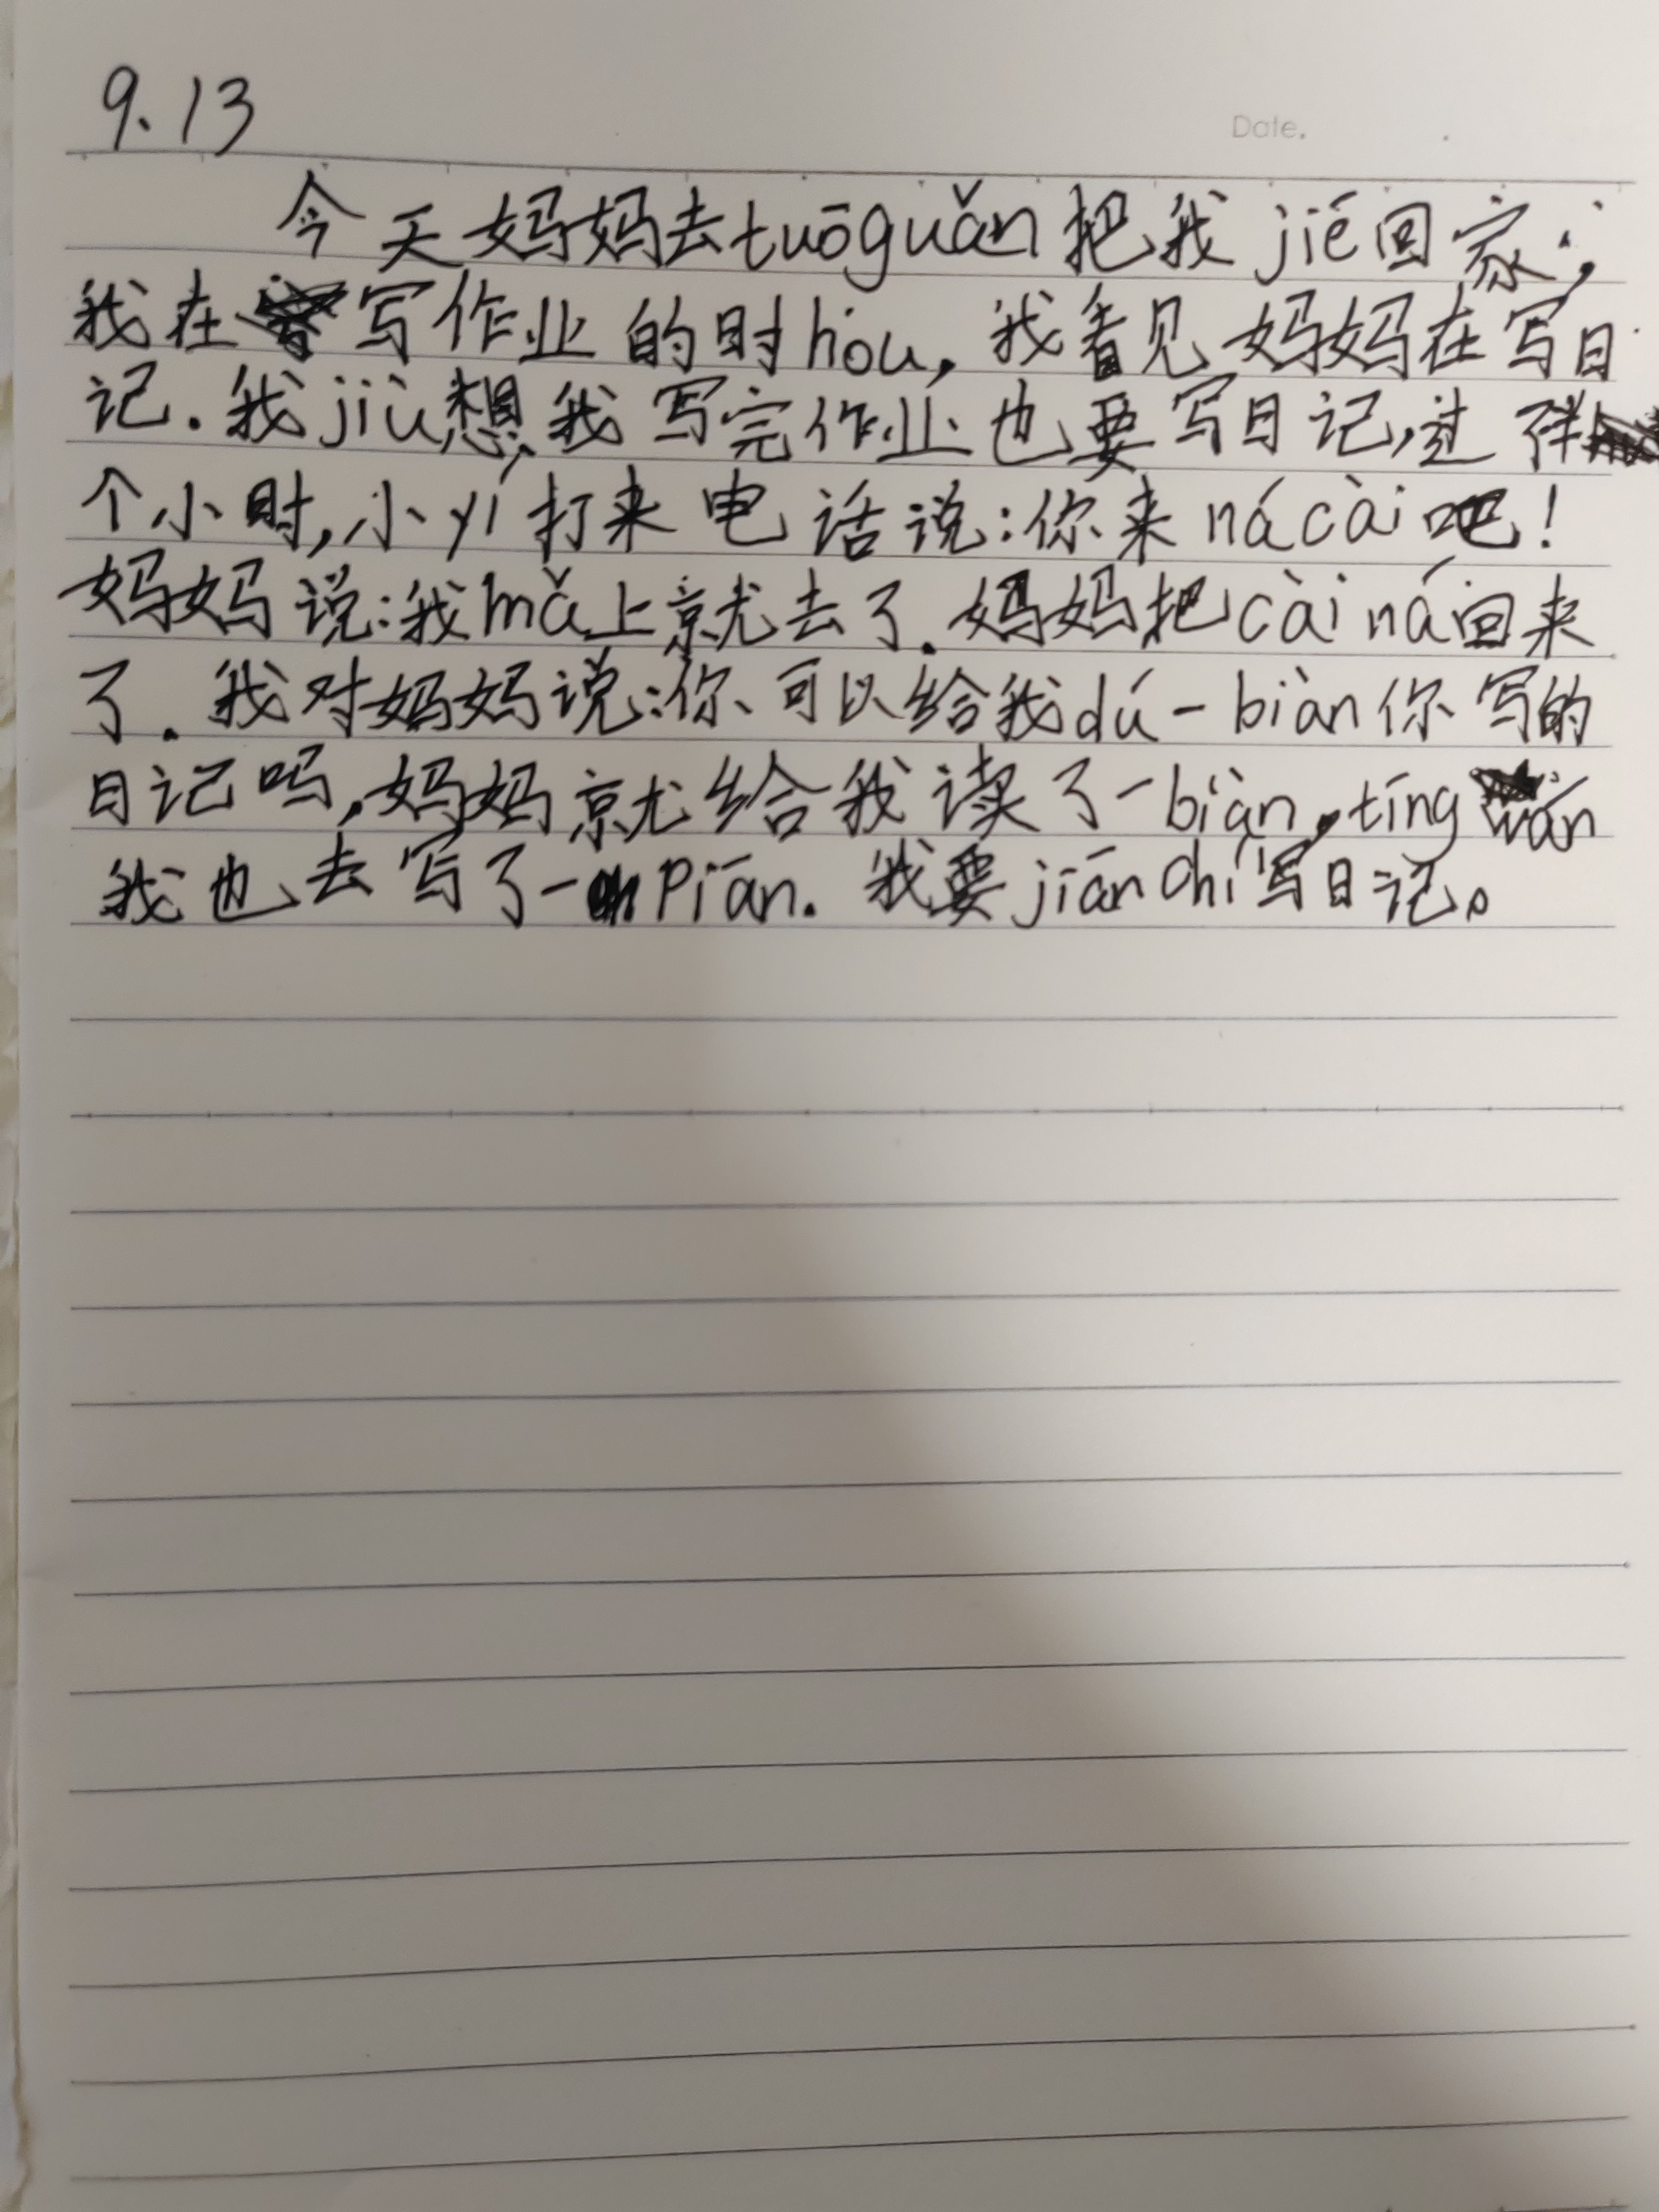 9.13
Date.
今天妈妈去tuōguǎn把我jiē回家,
我在写作业的时hòu,我看见妈妈在写日
记.我jiù想,我写完作业也要写日记,过了半
个小时,小yí打来电话说:你来nácài吧!
妈妈说:我mǎ上就去了.妈妈把càiná回来
了.我对妈妈说:你可以给我dú一biàn你写的
日记吗,妈妈就给我读了一biàn,tīng wán
我也去写了一piān.我要jiānchí写日记。